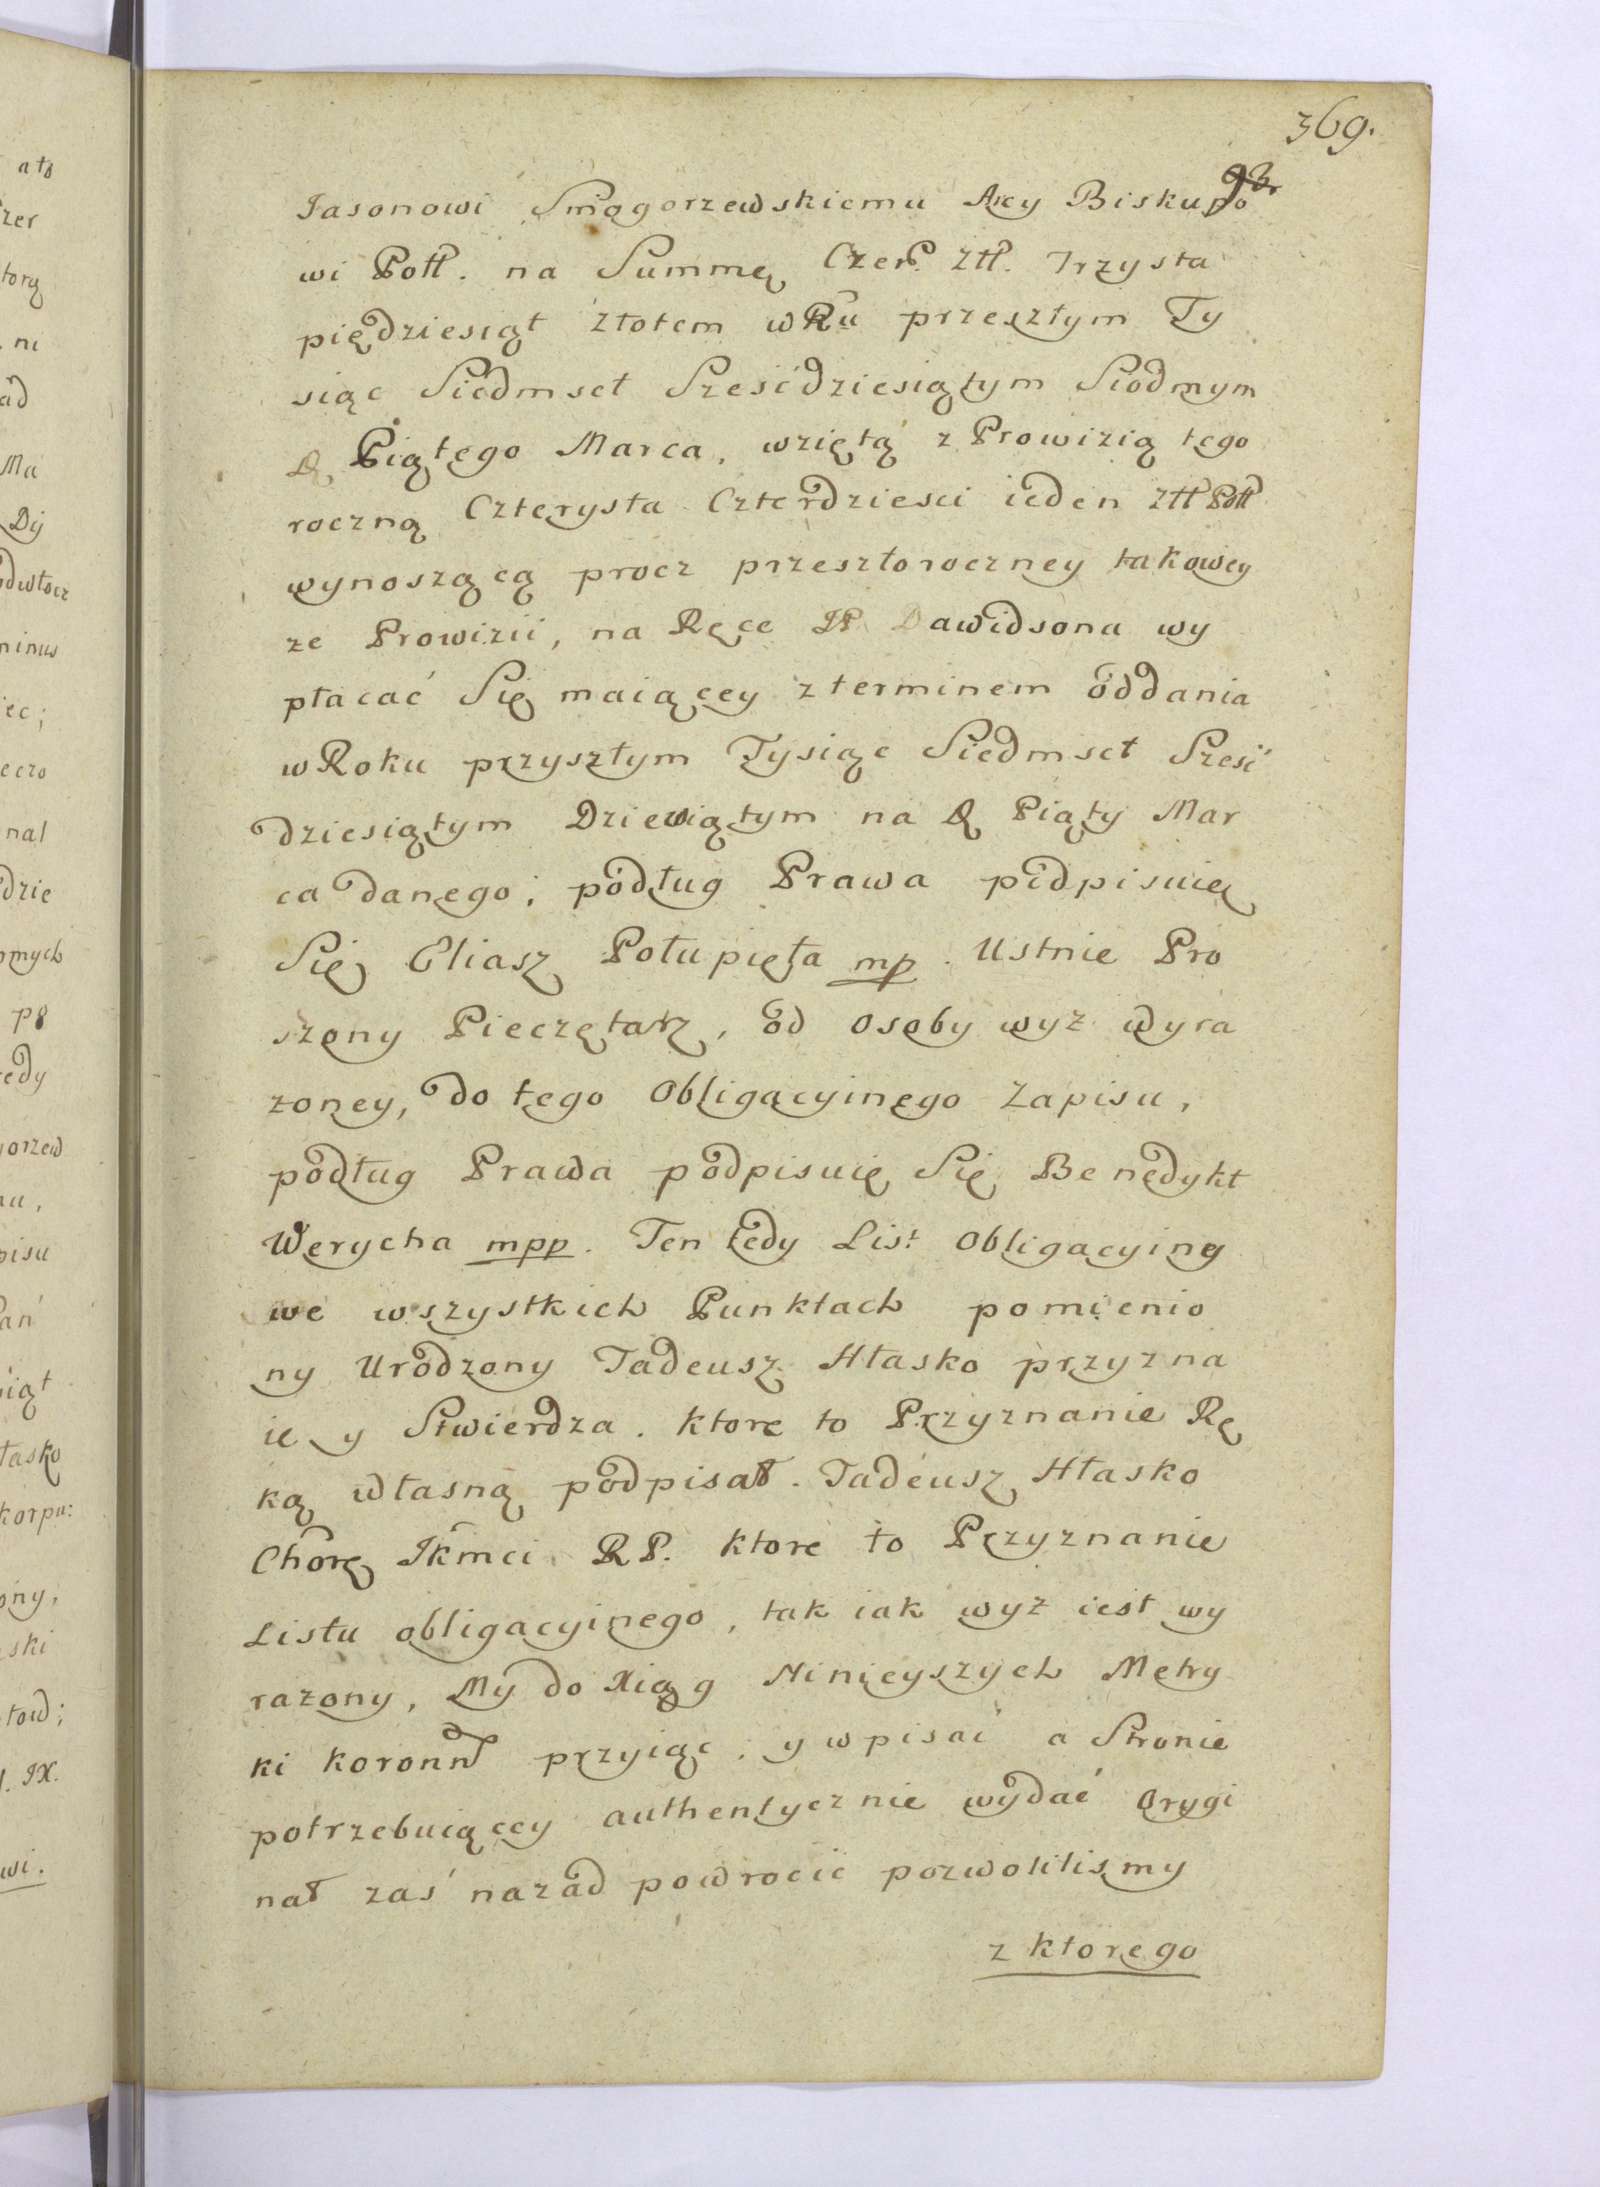 369.
Jasonowi Smogorzewskiemu Arcy Biskupo
wi Połł. na Summę Czer. Złł. Trzysta
pięćdziesiąt złotem w Ru przeszłym Ty
siąc Siedmset Sześćdziesiątym Siodmym
D Piątego Marca, wziętą z Prowizią tego
roczną Czterysta Czterdziesci ieden złł Poll
wynoszącą procz przeszłoroczney takowey
że Prowizii, na Ręce JP Dawidsona wy
płacać Się maiącey z terminem oddania
w Roku przyszłym Tysiąc Siedmset Sześć
dziesiątym Dziewiątym na D Piąty Mar
ca danego; podług Prawa podpisuię
Się Eliasz Połupięta mp. Ustnie Pro
szony Pieczętarz, od osoby wyż wyra
żoney, do tego Obligacyinego Zapisu,
podług Prawa podpisuię Się Benedykt
Werycha mpp. Ten tedy List Obligacyiny
we wszystkich Punktach pomienio
ny Urodzony Tadeusz Hłasko przyzna
ie y Stwierdza. ktore to Przyznanie Rę
ką własną podpisał. Tadeusz Hłasko
Chorę Jkmci RP. ktore to Przyznanie
Listu obligacyinego, tak iak wyż iest wy
rażony, My do Xiąg Ninieyszych Metry
ki koronn przyiąc, y wpisać a Stronie
potrzebuiącey authentycznie wydać Orygi
nał zaś nazad powrocić pozwolilismy
z ktorego